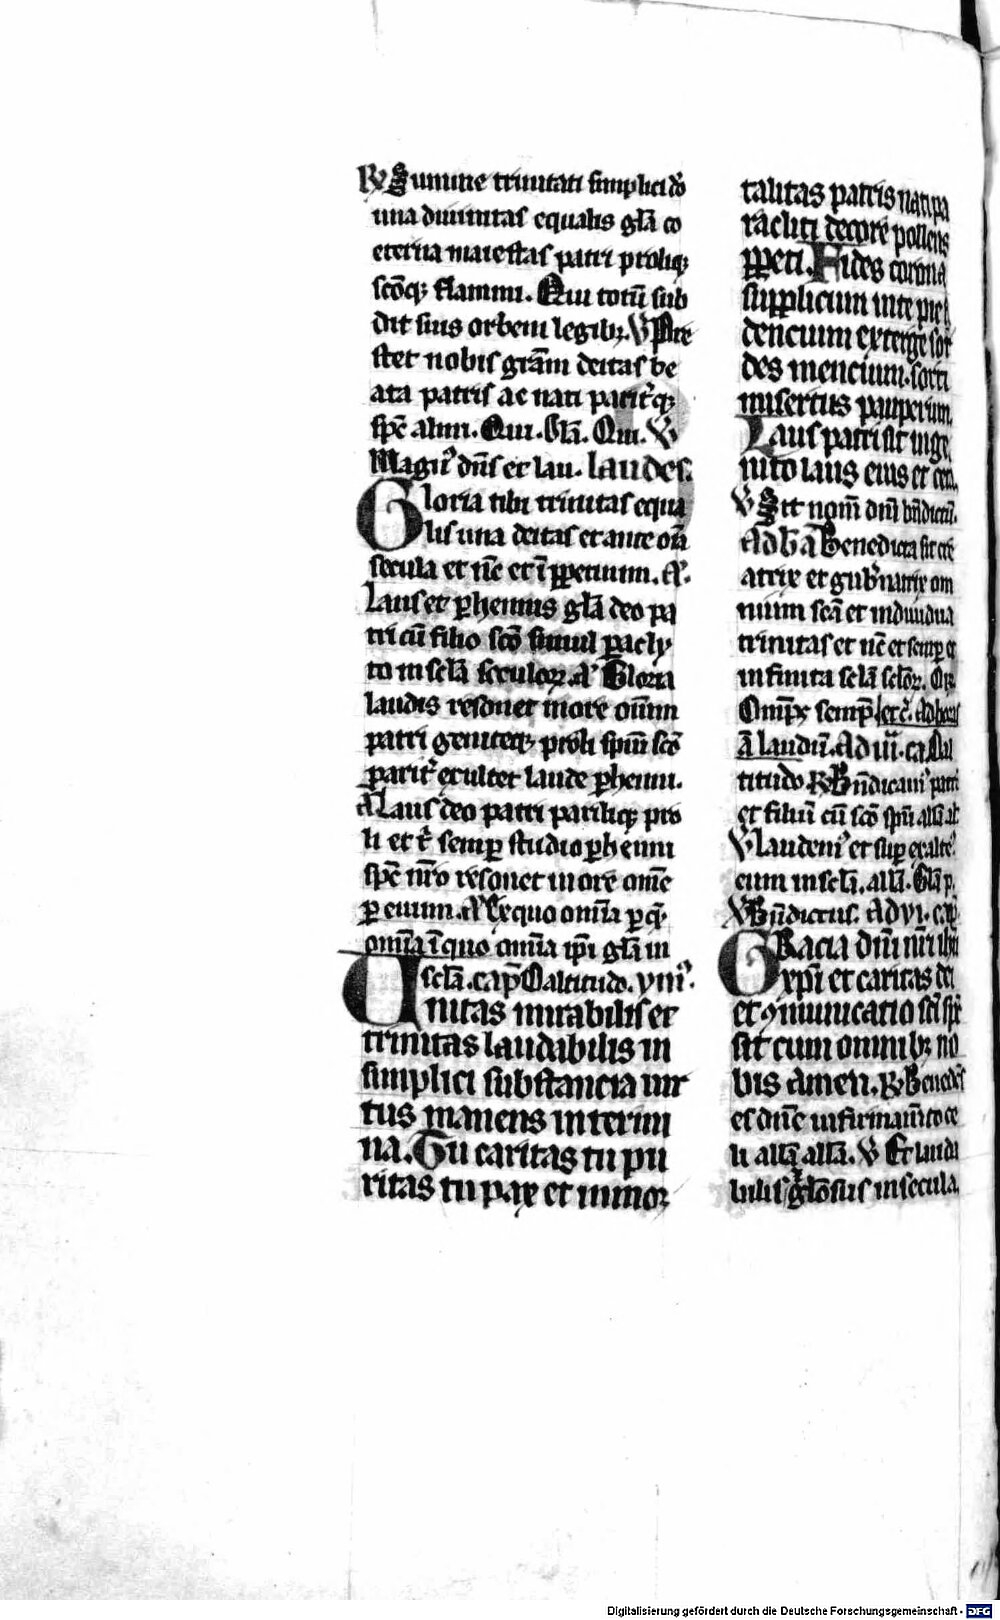 R Summe trinitati simplici dō
una diuinitas equalis glā co
eterna maiestas patri proliq;
scōq; flammi. Qui totū sub
dit suis orbem legib; V Pre
stet nobis grām deitas be
ata patris ac nati parit'q;
spē almi. Qui. Glā. Qui. V
Magn' dn̄s et lau. laudes.
Gloria tibi trinitas equa
lis una deitas et ante om̄ia
secula et nc̄ et ī ꝑpetuum. A.
Laus et ꝑhennis glā deo pa
tri cū filio scō simul paracly
to in sclā seculoꝝ. A Gloria
laudis resonet in ore om̄iu
patri geniteq; proli spiui scō
parit' exultet laude ꝑhenni.
A Laus deo patri parilique pro
li et t' semꝑ studio ꝑhenni
spē nr̄o resonet in ore om̄e
ꝑ euum. A Ex quo om̄ia ꝑ q̄
om̄ia ī quo om̄ia ip̄i glā in
sclā. cap̄ O altitudo. ymn'.
Unitas mirabilis et
trinitas laudabilis in
simplici substancia uir
tus manens in termi
na. Tu caritas tu pu
ritas tu pax et inmor
talitas patris nati pa
racliti decore pollens
ꝑpeti. Fides corona
supplicium
dencium exterge sor
des mencium. sorti
misertus pauperum.
Laus patri sit inge
nito laus eius et
V Sit nom̄ dn̄i bn̄dictū.
Ad b̄ a Benedicta sit cre
atrix et gub'natrix om
nium scā et indiuidua
trinitas et nc̄ et semꝑ et
infinita sclā scloꝝ. Or
Omp̄s semp̄ etc̄. Ad horas
ā laudiū. Ad iii. ca O al
titudo R Bn̄dicam' patrē
et filiū cū scō spū allā al
V laudem' et suꝑ exalte'
eum in sclā. allā. Glā p.
V Bn̄dictus. Ad vi. cap̄
Gracia dn̄i nr̄i ihū
xp̄i et caritas dei
et ꝯmunicatio sc̄i sp̄s
sit cum omnib; no
bis Amen. R Bened̄s
es dn̄e in firmam̄to ce
li allā allā. V Et lauda
bilis et glōsus in secula.
Digitalisierung gefördert durch die Deutsche Forschungsgemeinschaft - DFG